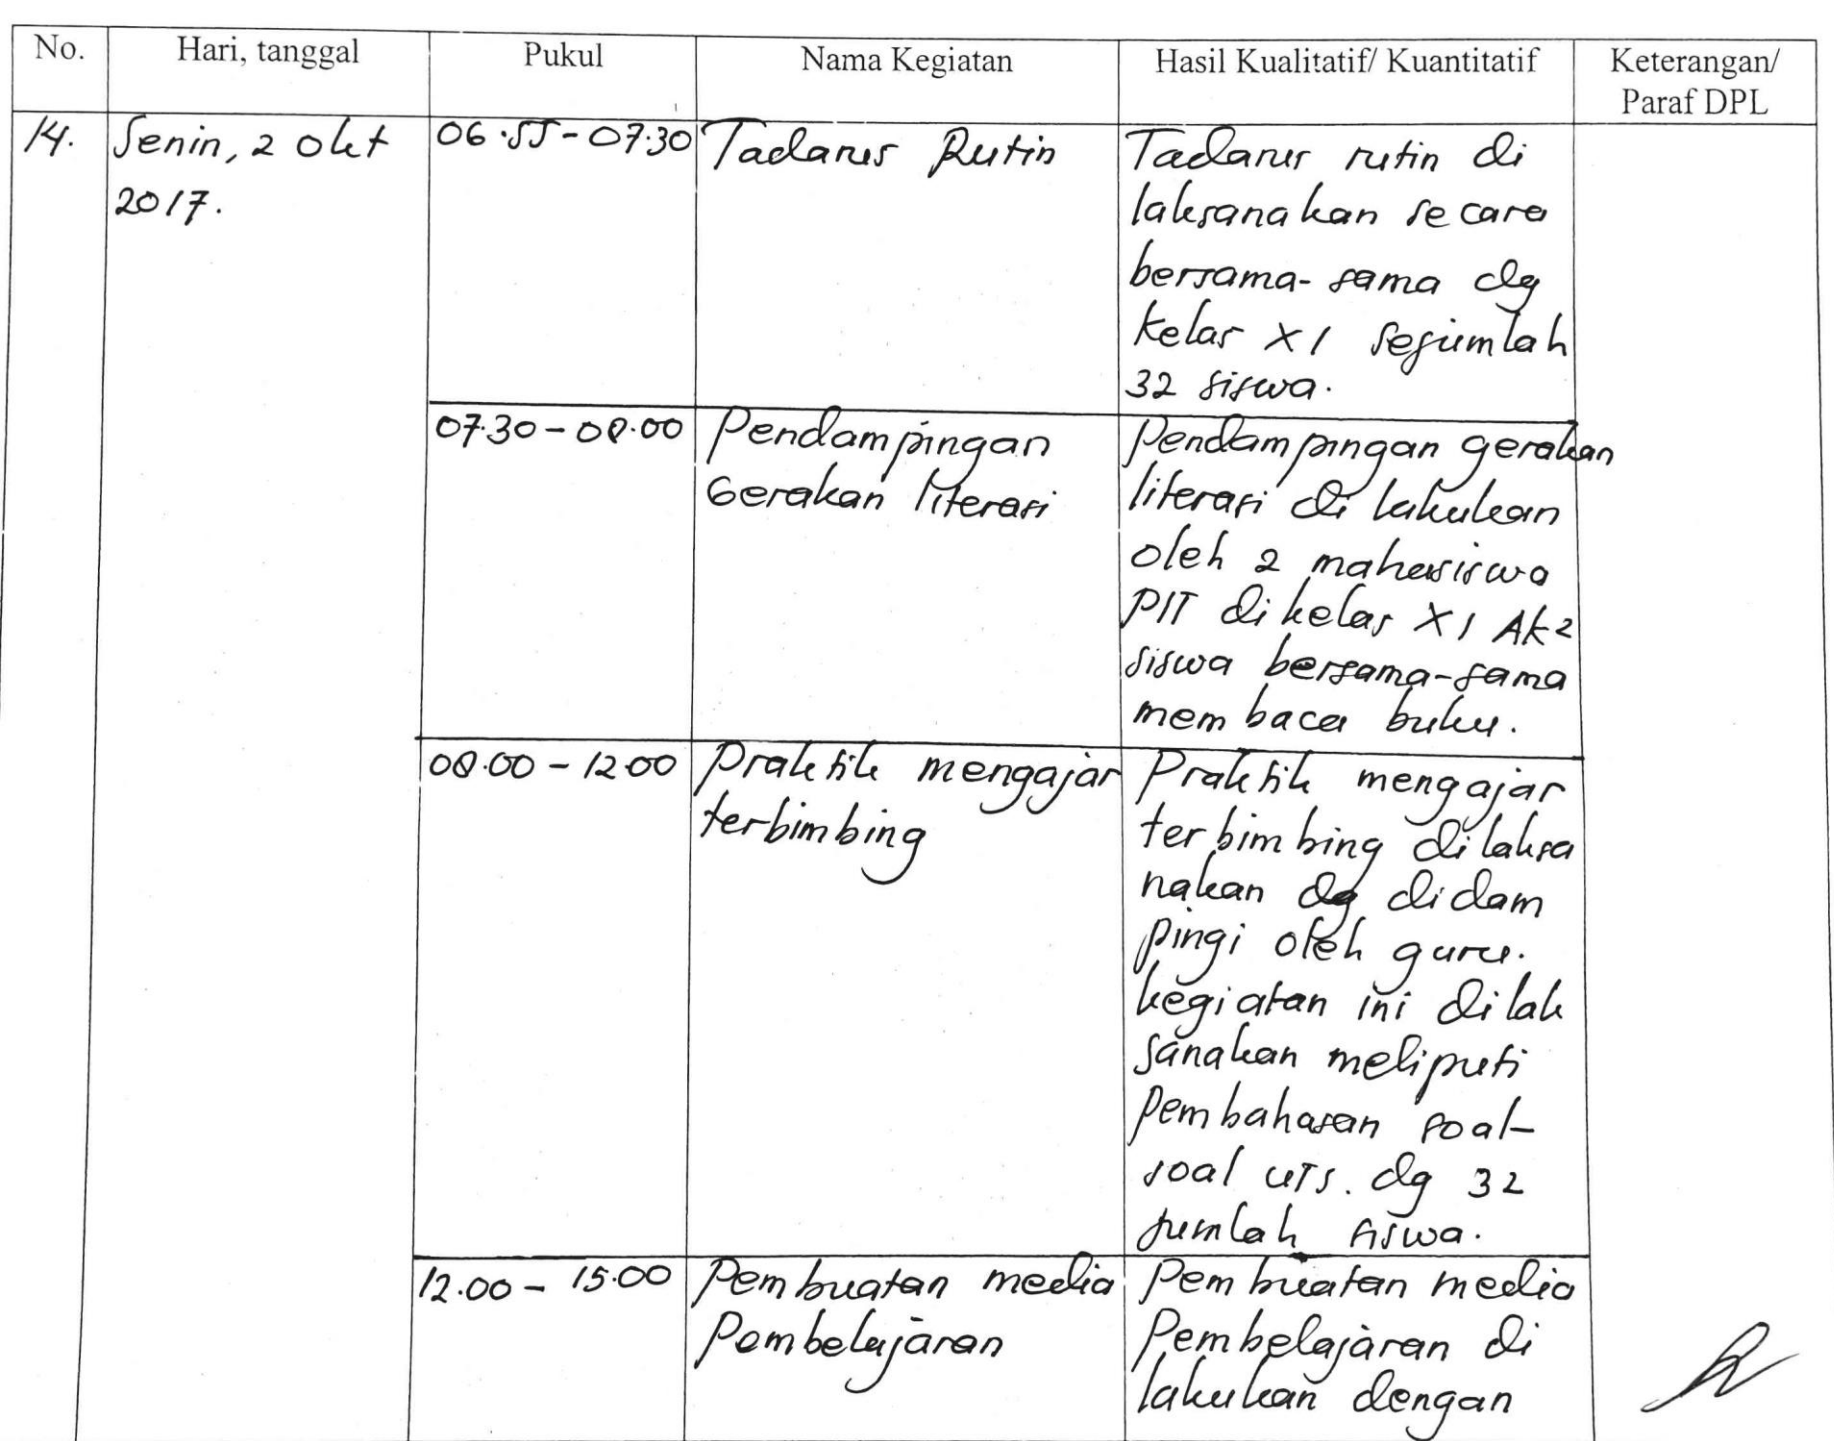 No. Hari, tanggal Pukul Nama Kegiatan Hasil Kualitatif/ Kuantitatif Keterangan/
Paraf DPL
14. Senin, 2 Okt 06.55-07.30 Tadarus Rutin Tadarus rutin di
2017. laksanakan secara
bersama-sama dg
kelas XI sejumlah
32 siswa.
07.30-08.00 Pendampingan Pendampingan gerakan
Gerakan literasi literasi di lakukan
oleh 2 mahasiswa
PIT di kelas XI AK2
siswa bersama-sama
mem baca buku.
08.00-12.00 Praktik mengajar Praktik mengajar
terbimbing terbimbing dilaksa
nakan dg didam
pingi oleh guru.
kegiatan ini dilak
sanakan meliputi
pembahasan soal-
soal UTS. dg 32
jumlah siswa.
12.00-15.00 Pembuatan media Pembuatan media
Pembelajaran Pembelajaran di
lakukan dengan